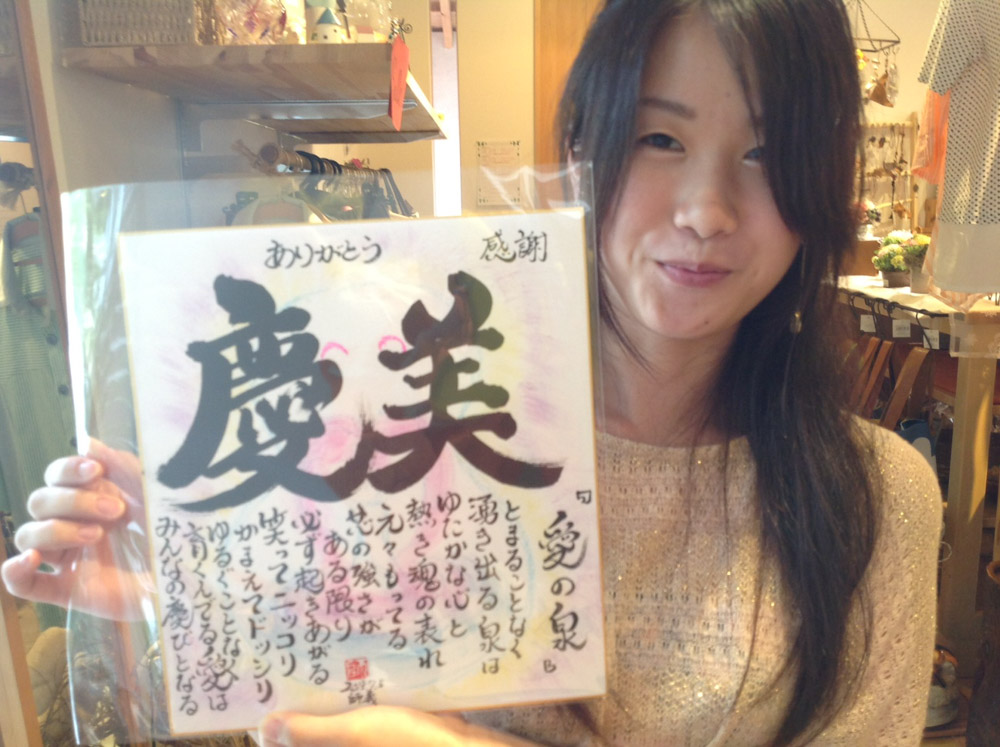 感謝
ありがとう
美慶
『愛の泉』
とまることなく
湧き出る泉は
ゆたかな心と
熱き魂の表れ
元々もってる
芯の強さが
ある限り
必ず起きあがる
笑ってニッコリ
かまえてドッシリ
ゆるぐことなく
育くんでる愛は
みんなの慶びとなる